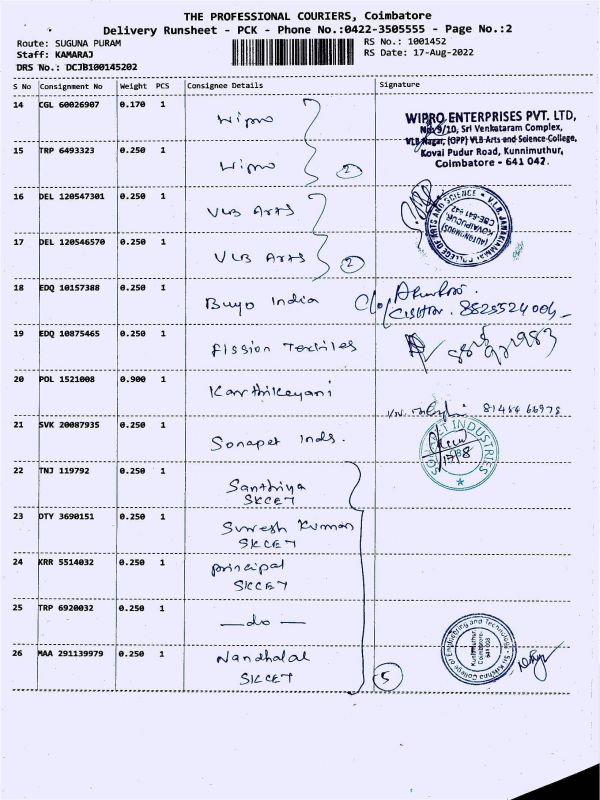 THE PROFESSIONAL COURIERS, Coimbatore
Delivery Runsheet - PCK - Phone No.:0422-3505555 - Page No.:2
Route: SUGUNA PURAM
RS No.: 1001452
Staff: KAMARAJ
RS Date: 17-Aug-2022
DRS No.: DCJB100145202
S No Consignment No Weight PCS Consignee Details Signature
14 CGL 60026907 0.170 1 Wipro
WIPRO ENTERPRISES PVT. LTD,
No: 9/10, Sri Venkataram Complex,
VLB Nagar, (OPP) VLB Arts and Science College,
Kovai Pudur Road, Kunnimuthur,
Coimbatore - 641 042.
15 TRP 6493323 0.250 1 Wipro 2
16 DEL 120547301 0.250 1 VLB Arts
V.L.B. JANAKIAMMAL COLLEGE OF ARTS AND SCIENCE
(AUTONOMOUS)
KOVAIPUDUR
CBE-641 042
17 DEL 120546570 0.250 1 VLB Arts 2
18 EDQ 10157388 0.250 1 Buyo India C/o
19 EDQ 10875465 0.250 1 Fission Textiles
20 POL 1521008 0.900 1 Karthikeyani
81486 66978
21 SVK 20087935 0.250 1 Sonapet Inds.
INDUSTRIES
17/8
22 TNJ 119792 0.250 1 Santhiya
SKCET
23 DTY 3690151 0.250 1 Suresh Kumar
SKCET
24 KRR 5514032 0.250 1 principal
SKCET
25 TRP 6920032 0.250 1 — do —
26 MAA 291139979 0.250 1 Nandhalal
SKCET 5
Sri Krishna College of Engineering and Technology
Kuniamuthur
Coimbatore-
641 008